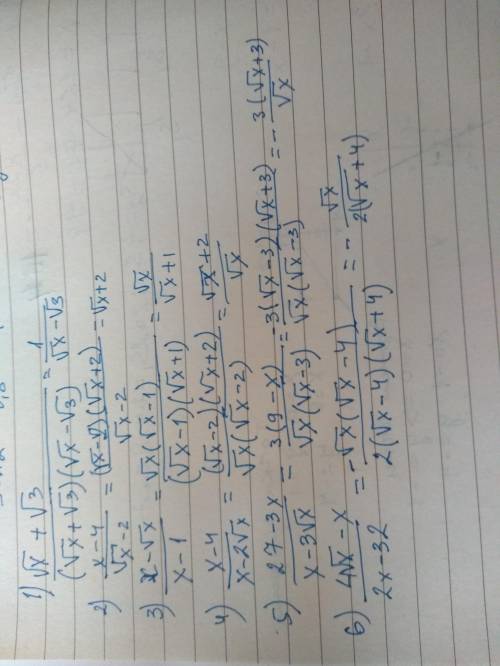 1) (√x + √3)/((√x+√3)(√x-√3)) = 1/(√x-√3)
2) (x-4)/(√x-2) = ((√x-2)(√x+2))/(√x-2) = √x+2
3) (x-√x)/(x-1) = (√x(√x-1))/((√x-1)(√x+1)) = √x/(√x+1)
4) (x-4)/(x-2√x) = ((√x-2)(√x+2))/(√x(√x-2)) = (√x+2)/√x
5) (27-3x)/(x-3√x) = (3(9-x))/(√x(√x-3)) = (-3(√x-3)(√x+3))/(√x(√x-3)) = - (3(√x+3))/√x
6) (4√x-x)/(2x-32) = (-√x(√x-4))/(2(√x-4)(√x+4)) = - √x/(2(√x+4))